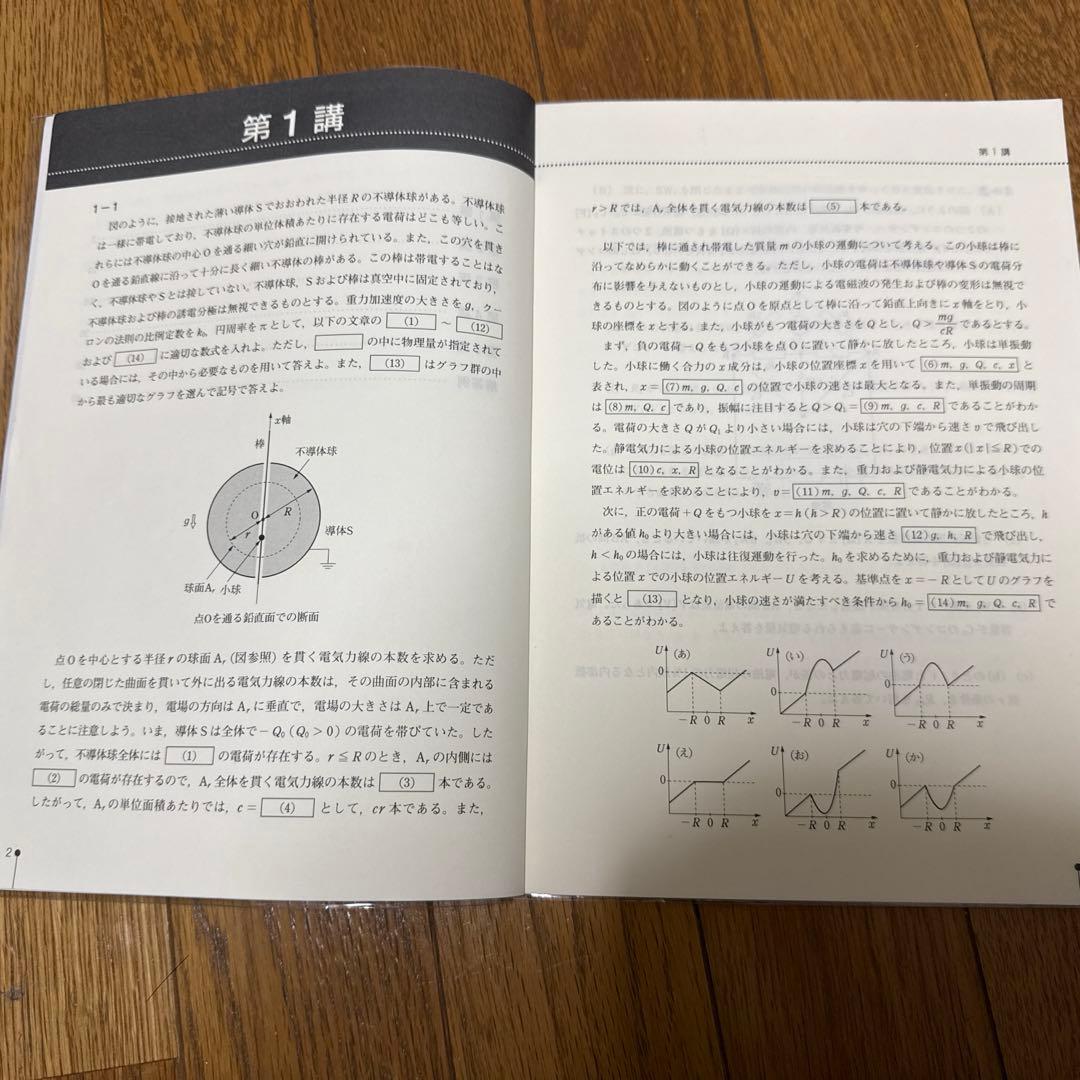 第1講
1－1
図のように，接地された薄い導体Sでおおわれた半径Rの不導体球がある。不導体球
は一様に帯電しており，不導体球の単位体積あたりに存在する電荷はどこも等しい。こ
れらには不導体球の中心Oを通る細い穴が鉛直に開けられている。また，この穴を貫き
Oを通る鉛直線に沿って十分に長く細い不導体の棒がある。この棒は帯電することはな
く，不導体球やSとは接していない。不導体球，Sおよび棒は真空中に固定されており，
不導体球および棒の誘電分極は無視できるものとする。重力加速度の大きさをg，クー
ロンの法則の比例定数をk₀，円周率をπとして，以下の文章の (1) ～ (12)
および (14) に適切な数式を入れよ。ただし， の中に物理量が指定されて
いる場合には，その中から必要なものを用いて答えよ。また， (13) はグラフ群の中
から最も適切なグラフを選んで記号で答えよ。
x軸
棒
不導体球
O
R
g
r
導体S
球面Aᵣ 小球
点Oを通る鉛直面での断面
点Oを中心とする半径rの球面Aᵣ（図参照）を貫く電気力線の本数を求める。ただ
し，任意の閉じた曲面を貫いて外に出る電気力線の本数は，その曲面の内部に含まれる
電荷の総量のみで決まり，電場の方向はAᵣに垂直で，電場の大きさはAᵣ上で一定であ
ることに注意しよう。いま，導体Sは全体で－Q₀（Q₀＞0）の電荷を帯びていた。した
がって，不導体球全体には (1) の電荷が存在する。r≦Rのとき，Aᵣの内側には
(2) の電荷が存在するので，Aᵣ全体を貫く電気力線の本数は (3) 本である。
したがって，Aᵣの単位面積あたりでは，c＝ (4) として，cr本である。また，
2
第1講
r＞Rでは，Aᵣ全体を貫く電気力線の本数は (5) 本である。
以下では，棒に通され帯電した質量mの小球の運動について考える。この小球は棒に
沿ってなめらかに動くことができる。ただし，小球の電荷は不導体球や導体Sの電荷分
布に影響を与えないものとし，小球の運動による電磁波の発生および棒の変形は無視で
きるものとする。図のように点Oを原点として棒に沿って鉛直上向きにx軸をとり，小
球の座標をxとする。また，小球がもつ電荷の大きさをQとし，Q＞mg/cRであるとする。
まず，負の電荷－Qをもつ小球を点Oに置いて静かに放したところ，小球は単振動
した。小球に働く合力のx成分は，小球の位置座標xを用いて (6)m，g，Q，c，x と
表され，x＝ (7)m，g，Q，c の位置で小球の速さは最大となる。また，単振動の周期
は (8)m，Q，c であり，振幅に注目するとQ＞Q₁＝ (9)m，g，c，R であることがわか
る。電荷の大きさQがQ₁より小さい場合には，小球は穴の下端から速さvで飛び出し
た。静電気力による小球の位置エネルギーを求めることにより，位置x（|x|≦R）での
電位は (10)c，x，R となることがわかる。また，重力および静電気力による小球の位
置エネルギーを求めることにより，v＝ (11)m，g，Q，c，R であることがわかる。
次に，正の電荷＋Qをもつ小球をx＝h（h＞R）の位置に置いて静かに放したところ，h
がある値h₀より大きい場合には，小球は穴の下端から速さ (12)g，h，R で飛び出し，
h＜h₀の場合には，小球は往復運動を行った。h₀を求めるために，重力および静電気力に
よる位置xでの小球の位置エネルギーUを考える。基準点をx＝－RとしてUのグラフを
描くと (13) となり，小球の速さが満たすべき条件からh₀＝ (14)m，g，Q，c，R で
あることがわかる。
U （あ） 0 －R 0 R x
U （い） 0 －R 0 R x
U （う） 0 －R 0 R x
U （え） 0 －R 0 R x
U （お） 0 －R 0 R x
U （か） 0 －R 0 R x